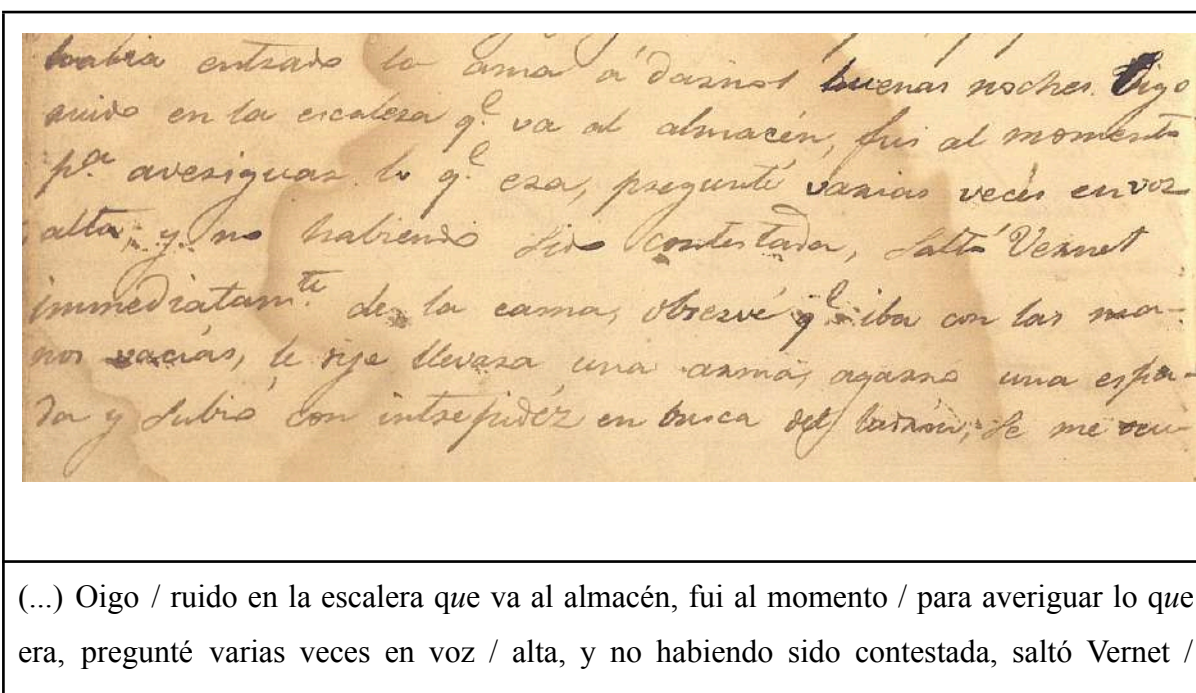 habia entrado la ama á darnos buenas noches. Oigo
ruido en la escalera q.e va al almacén, fui al momento
p.a averiguar lo q.e era, pregunté varias veces en voz
alta, y no habiendo sido contestada, saltó Vernet
immediatam.te de la cama, observé q.e iba con las ma-
nos vacías, le dije llevara una arma, agarró una espa-
da y subió con intrepidéz en busca del ladrón; se me
(...) Oigo / ruido en la escalera que va al almacén, fui al momento / para averiguar lo que
era, pregunté varias veces en voz / alta, y no habiendo sido contestada, saltó Vernet /